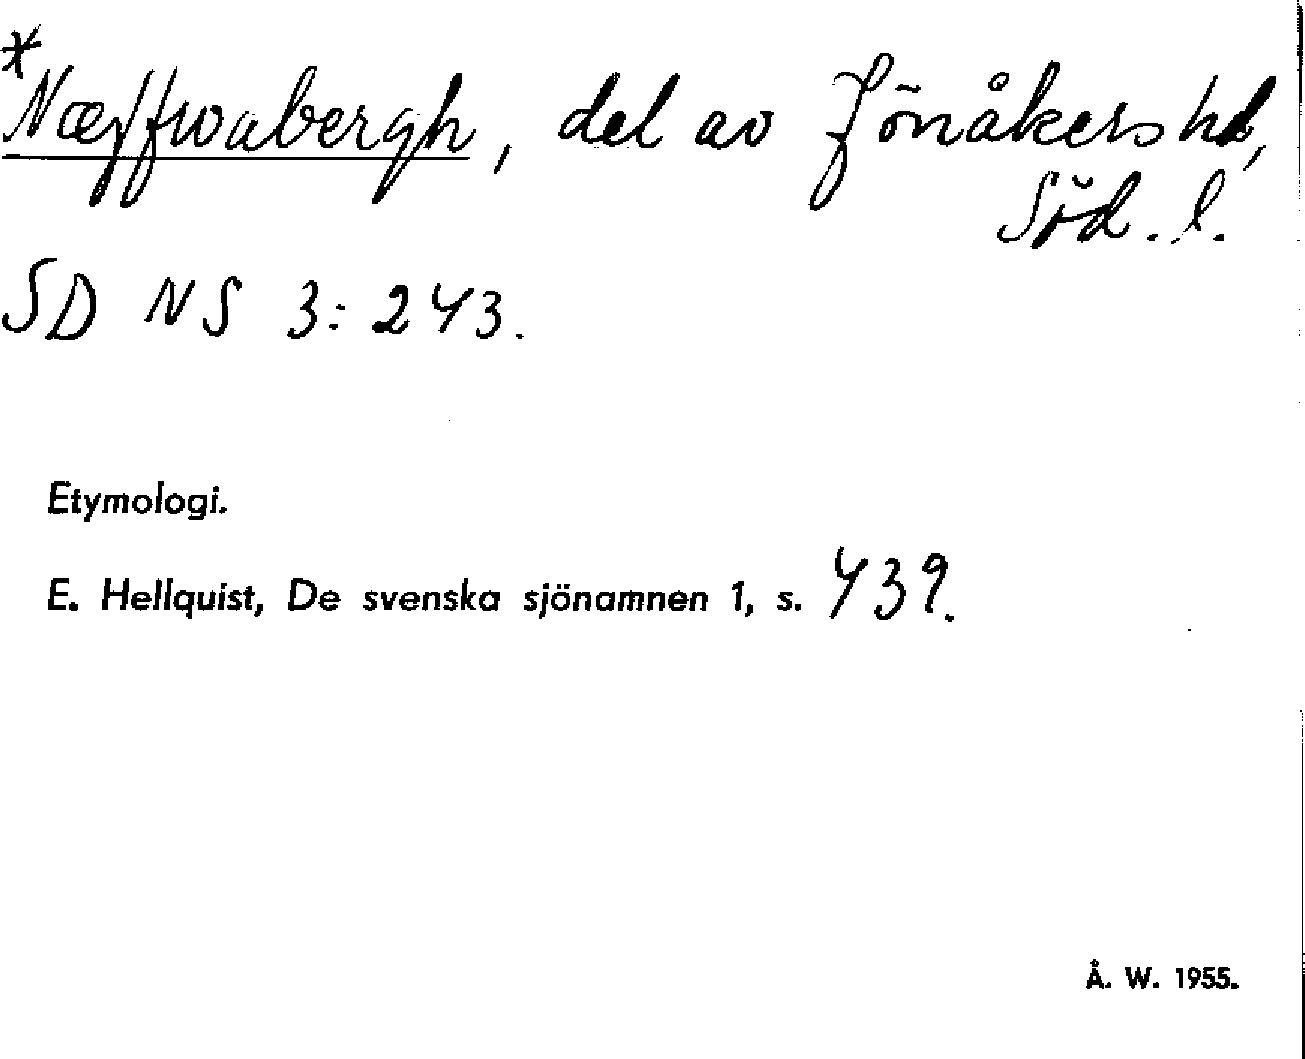 *Næffwabergh, del av Jönåkers hd,
Söd. l.
SD NS 3: 243.
Etymologi.
E. Hellquist, De svenska sjönamnen 1, s. 439.
Å. W. 1955.